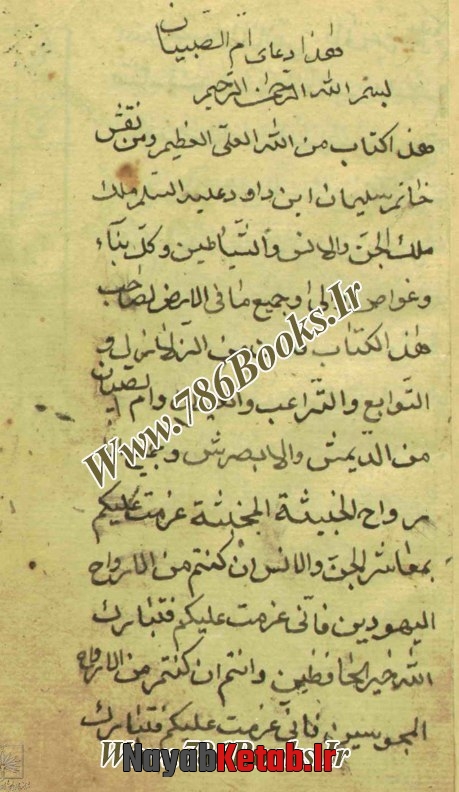 هذا دعای ام الصبیان
بسم الله الرحمن الرحیم
هذا کتاب من الله العلی العظیم ومن نقش
خاتم سلیمان ابن داود علیه السلم ملک
ملک الجن والانس والشیاطین وکل بناء
وغواص وجمیع ما فی الارض لصاحب
هذا الکتاب
التوابع وام الصبیان
من والابصرش
رواح الخبیثة المخبثة عزمت علیکم
بمعاشر الجن والانس ان کنتم من الارواح
الیهودین فانی عزمت علیکم فتبارک
الله خیر الحافظین وانتم ان کنتم من الارواح
المجوسین فانی عزمت علیکم فتبارک
Www.786Books.Ir
Www.786Books.Ir
NayabKetab.Ir